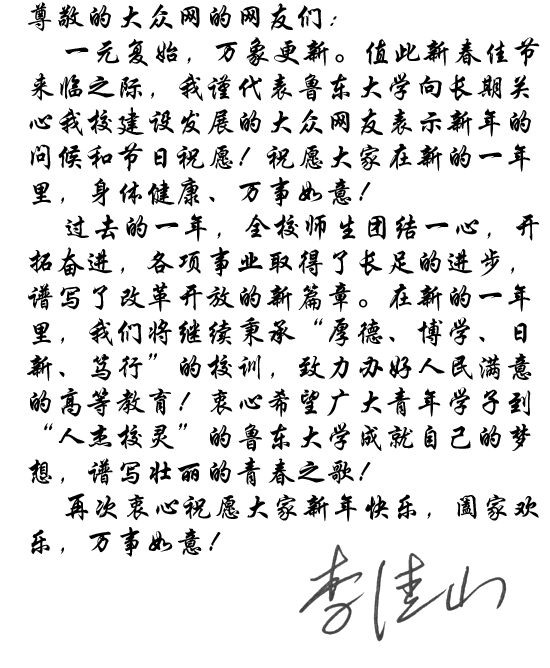 尊敬的大众网的网友们：
一元复始，万象更新。值此新春佳节
来临之际，我谨代表鲁东大学向长期关
心我校建设发展的大众网友表示新年的
问候和节日祝愿！祝愿大家在新的一年
里，身体健康、万事如意！
过去的一年，全校师生团结一心，开
拓奋进，各项事业取得了长足的进步，
谱写了改革开放的新篇章。在新的一年
里，我们将继续秉承“厚德、博学、日
新、笃行”的校训，致力办好人民满意
的高等教育！衷心希望广大青年学子到
“人杰校灵”的鲁东大学成就自己的梦
想，谱写壮丽的青春之歌！
再次衷心祝愿大家新年快乐，阖家欢
乐，万事如意！
李佳山